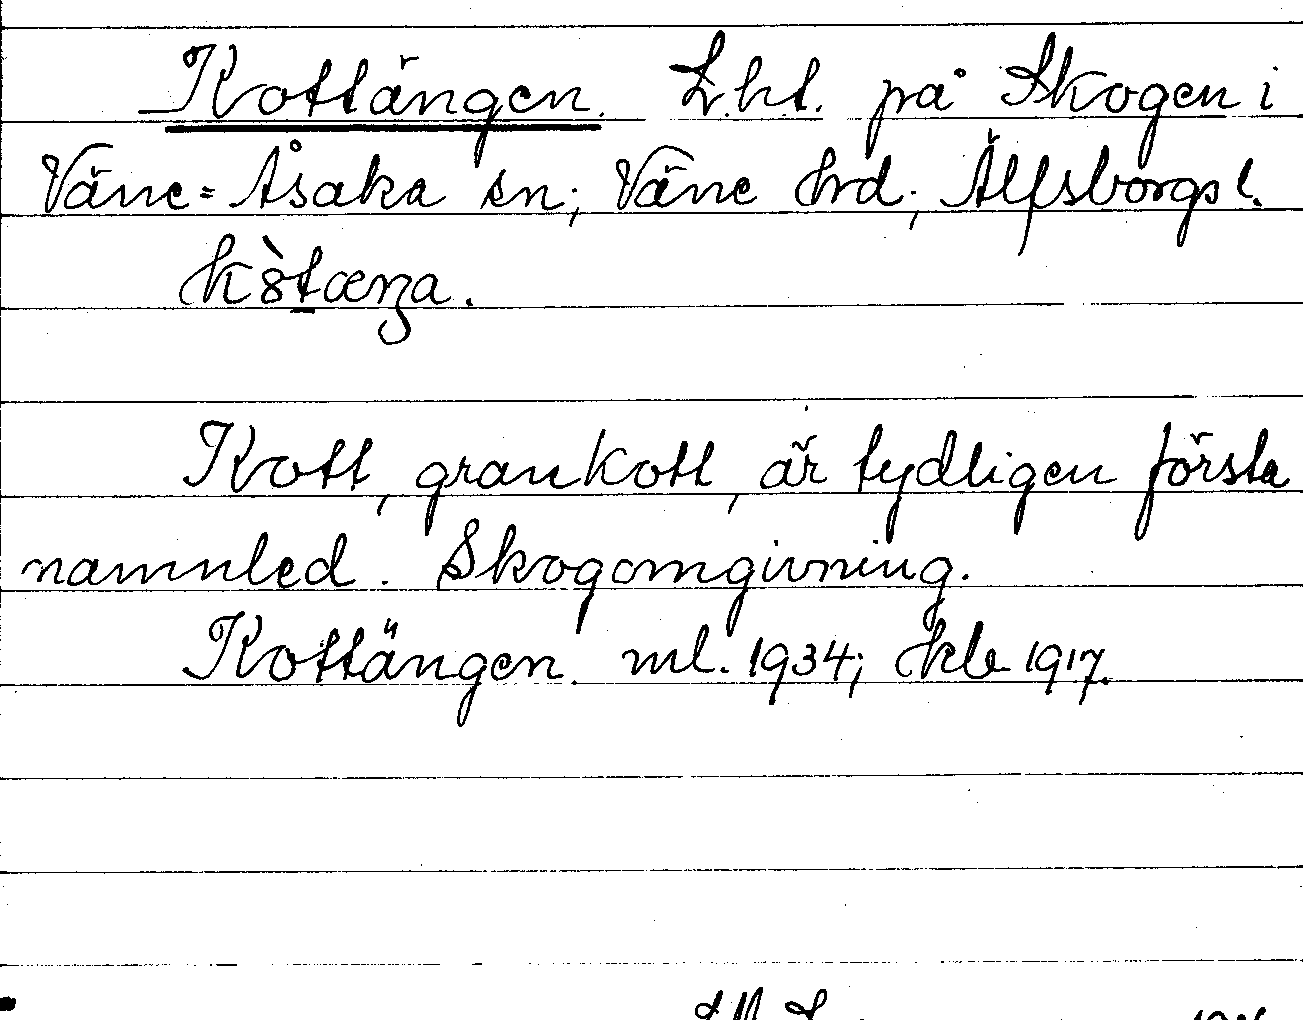 Kottängen. L.ht. på Skogen i
Väne-Åsaka sn; Väne hrd; Älfsborgs l.
Kott, grankott, är tydligen första
namnled. Skogomgivning.
Kottängen. ml. 1934; hkb 1917.